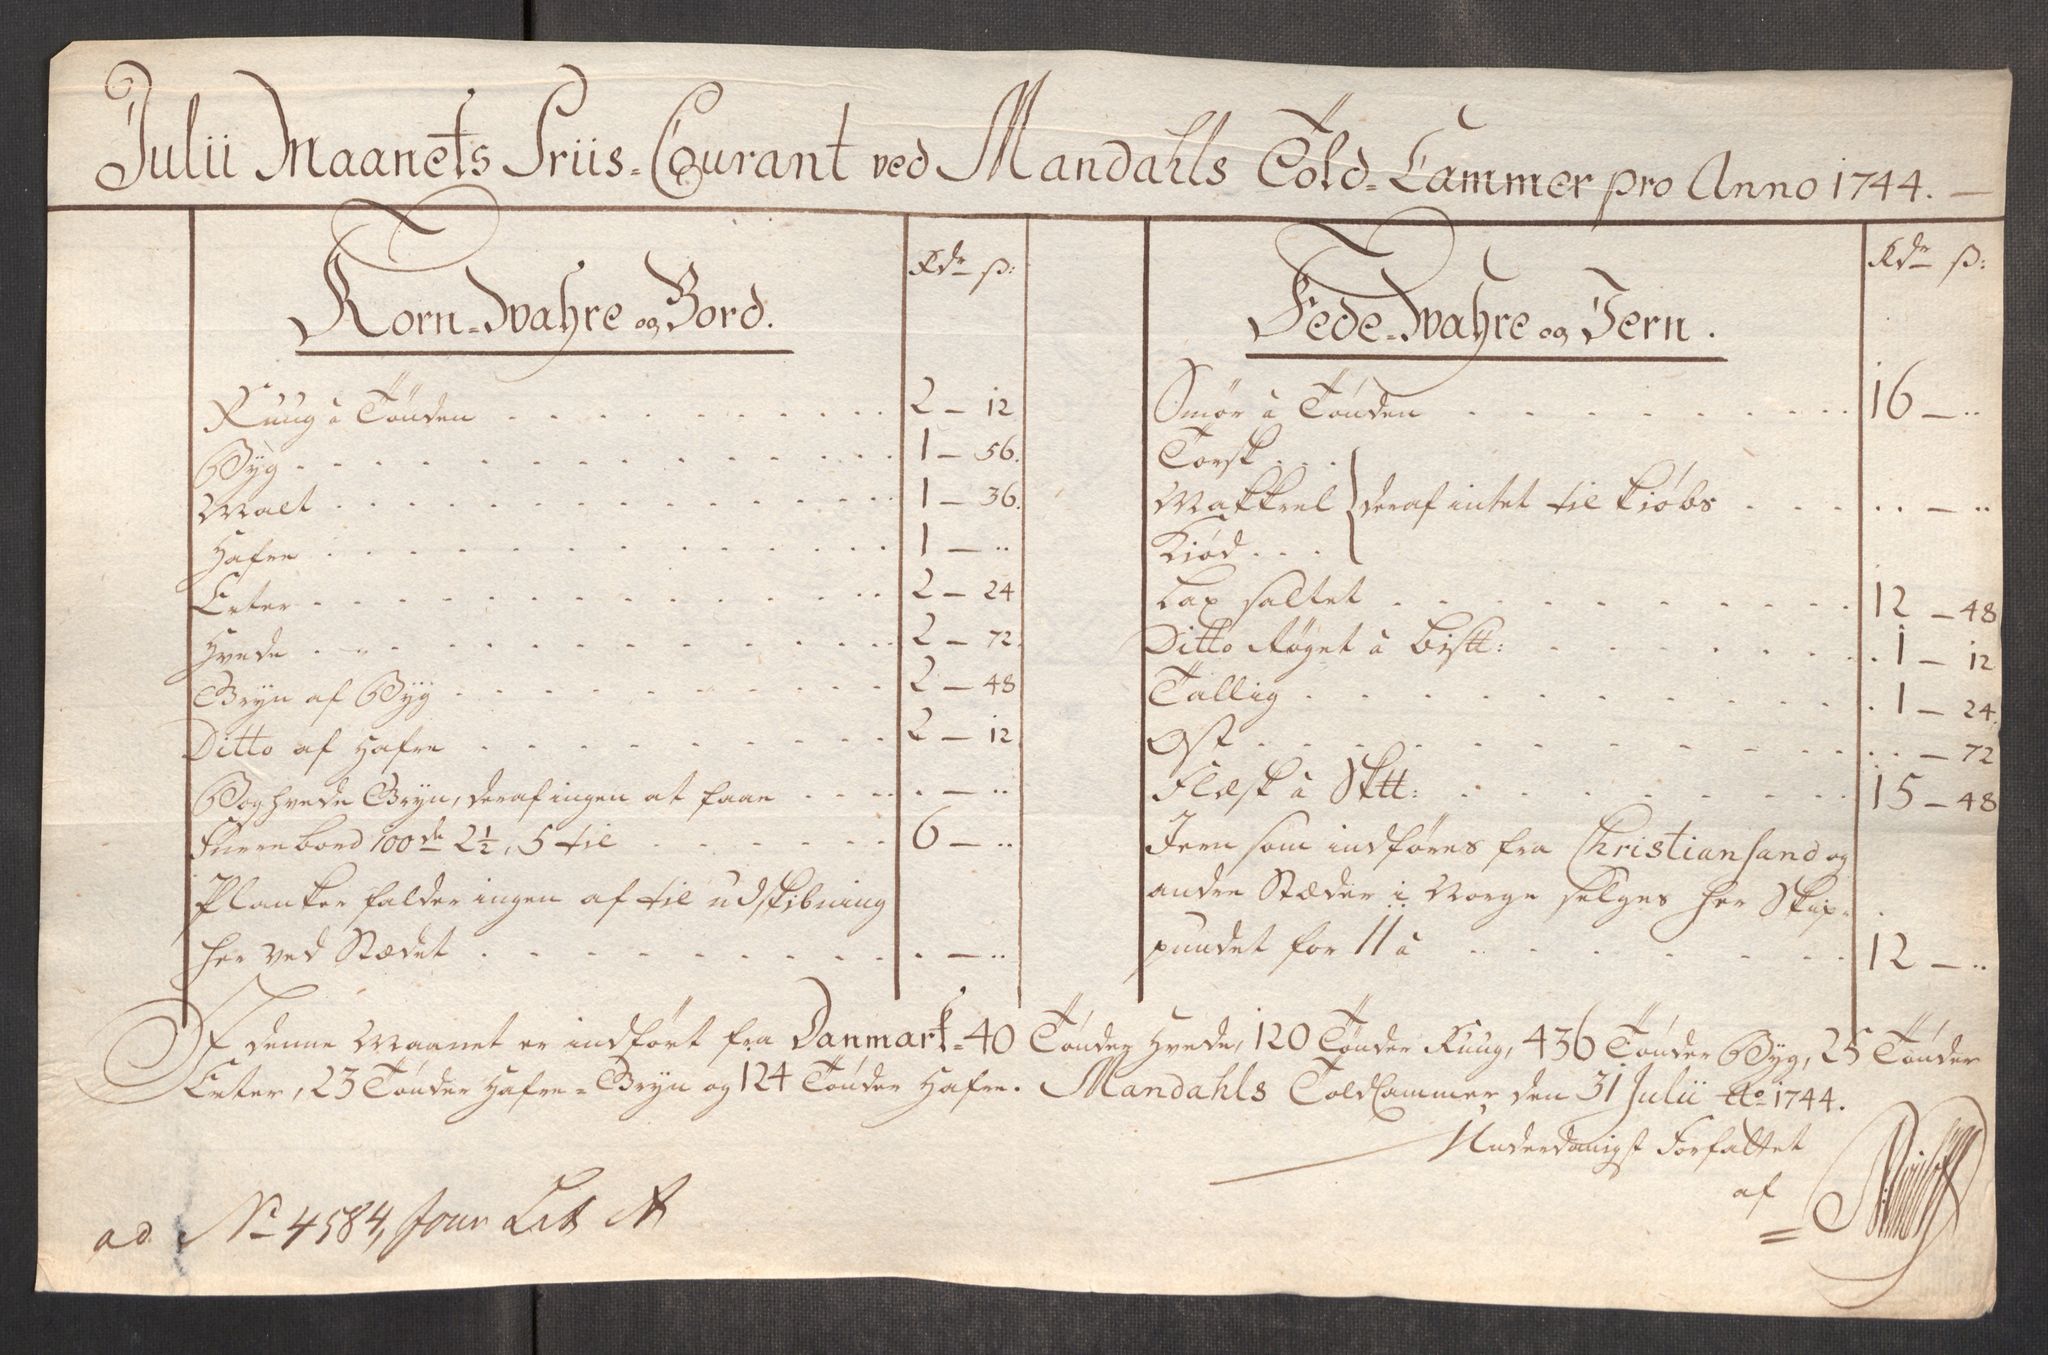 Julii Maanets Priis-Courant ved Mandahls Told-Cammer pro Anno 1744.
Korn-Wahre og Bord.
Rdr ß:
Ruug à Tønden 2 - 12
Byg 1 - 56.
Malt 1 - 36.
Hafre 1 - ..
Erter 2 - 24
Hvede 2 - 72.
Gryn af Byg 2 - 48
Ditto af Hafre 2 - 12
Boghvede Gryn, deraf ingen at faae . - ..
Furre bord 100de 2½, 5 til 6 - ..
Planker falder ingen af til udskibning
her ved Stædet . - ..
Fede-Wahre og Jern.
Rdr ß:
Smør à Tønden 16 - ..
Torsk
Makkrel } deraf intet til kiøbs .. - ..
Kiød
Lax saltet 12 - 48
Ditto Røget à Bistt: 1 - 12
Tallig 1 - 24.
Ost . - 72
Flæsk à Sktt: 15 - 48
Jern som indføres fra Christiansand og
andre Stæder i Norge selges her Skip-
pundet for 11 à 12 - ..
I denne Maanet er indført fra Danmark-40 Tønder Hvede, 120 Tønder Ruug, 436 Tønder Byg, 25 Tønder
Erter, 23 Tønder Hafre-Gryn og 124 Tønder Hafre. Mandahls ToldCammer den 31 Julii Ao 1744.
Underdanigst Forfattet
af
ad No 4584, Jour Lit A